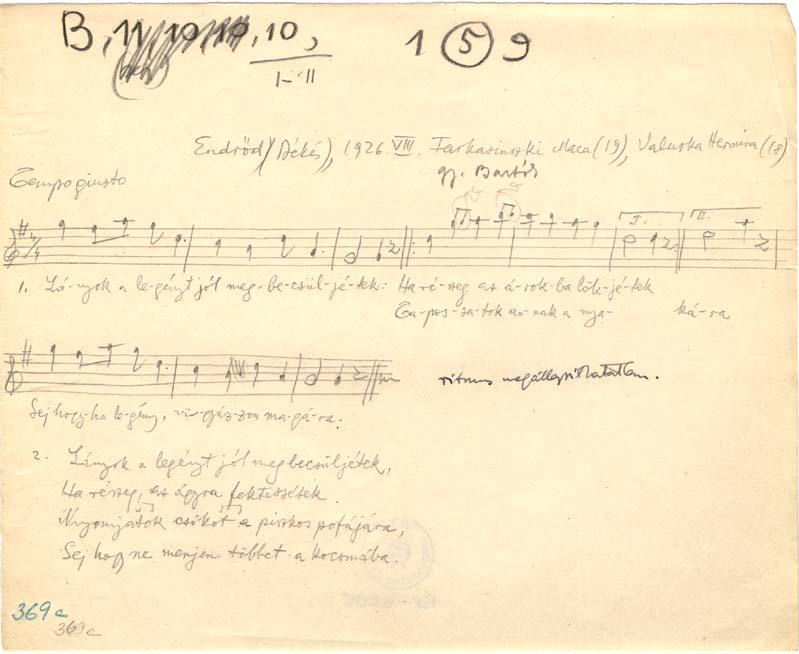 B, 11, 10, 10, 10,
I-II
1 5 9
Endrőd (Békés), 1926. VIII. Farkasinszki Maca (19), Valuska Hermina (18)
gy. Bartók
Tempo giusto
I. II.
1. Lá-nyok a le-gényt jól meg-be-csül-jé-tek: Ha ré-szeg az á-rok-ba lök-jé-tek
Ta-pos-sa-tok an-nak a nya- ká-ra
ritmus megállapíthatatlan.
Sej hogy-ha le-gény, vi-gyáz-zon ma-gá-ra.
2. Lányok a legényt jól megbecsüljétek,
Ha részeg, az ágyra fektessétek
Nyomjatok csókot a piszkos pofájára,
Sej hogy ne menjen többet a kocsmába.
369c
369c